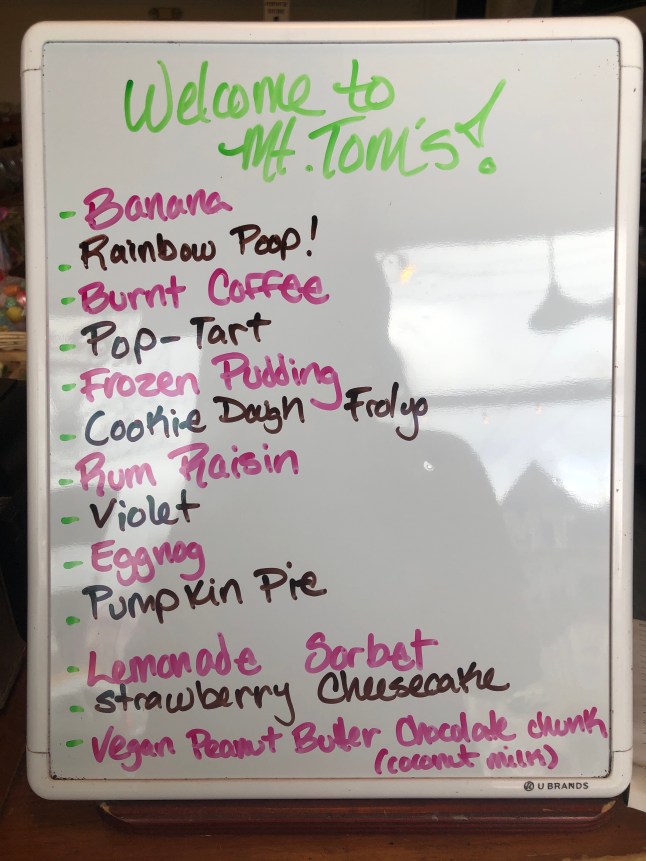 Welcome to
Mt. Tom's!
- Banana
- Rainbow Poop!
- Burnt Coffee
- Pop-Tart
- Frozen Pudding
- Cookie Dough Froyo
- Rum Raisin
- Violet
- Eggnog
- Pumpkin Pie
- Lemonade Sorbet
- Strawberry Cheesecake
- Vegan Peanut Butter Chocolate chunk
(coconut milk)
U BRANDS